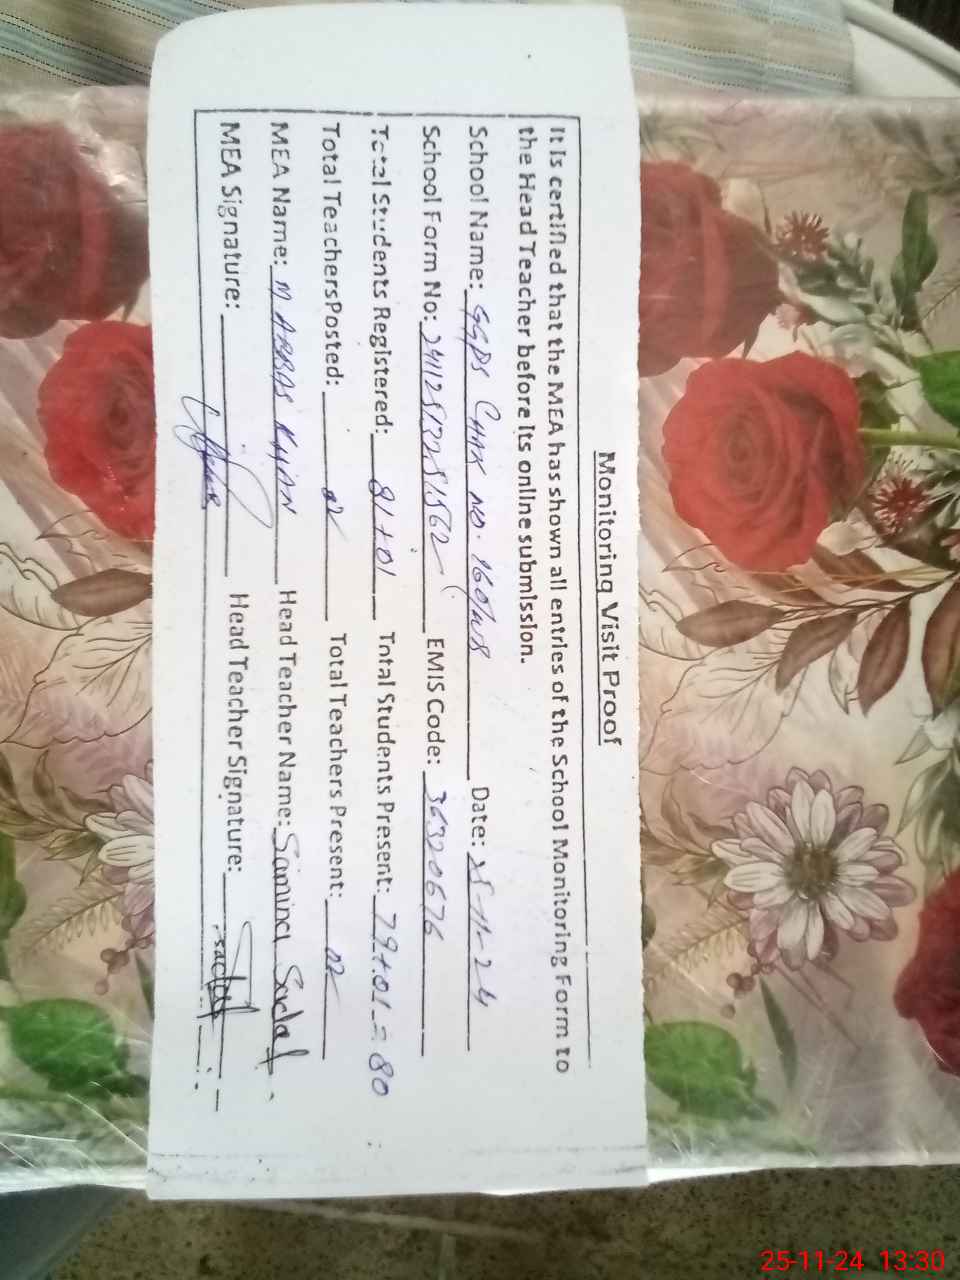 Monitoring Visit Proof
It is certified that the MEA has shown all entries of the School Monitoring Form to
the Head Teacher before its online submission.
School Name: GGPS CHAK NO. 160/WB Date: 25-11-24
School Form No: EMIS Code: 36320676
Total Students Registered: 81+01 Total Students Present: 79+01=80
Total TeachersPosted: 02 Total Teachers Present: 02
MEA Name: M ABBAS KHAN Head Teacher Name: Samina Sadaf
MEA Signature: Head Teacher Signature: Sadaf
25-11-24 13:30